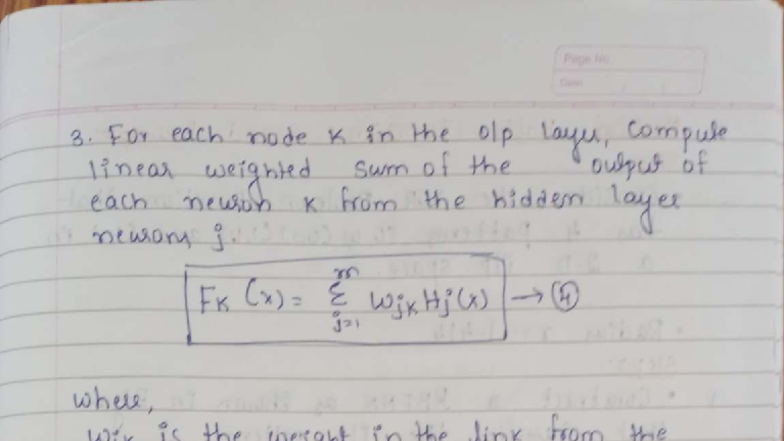 Page No
Date
3. For each node K in the o/p layer, compute
linear weighted sum of the output of
each neuron K from the hidden layer
neurons j.
FK (x) = m Σ j=1 wjK Hj(x) → 4
where,
wjk is the weight in the link from the